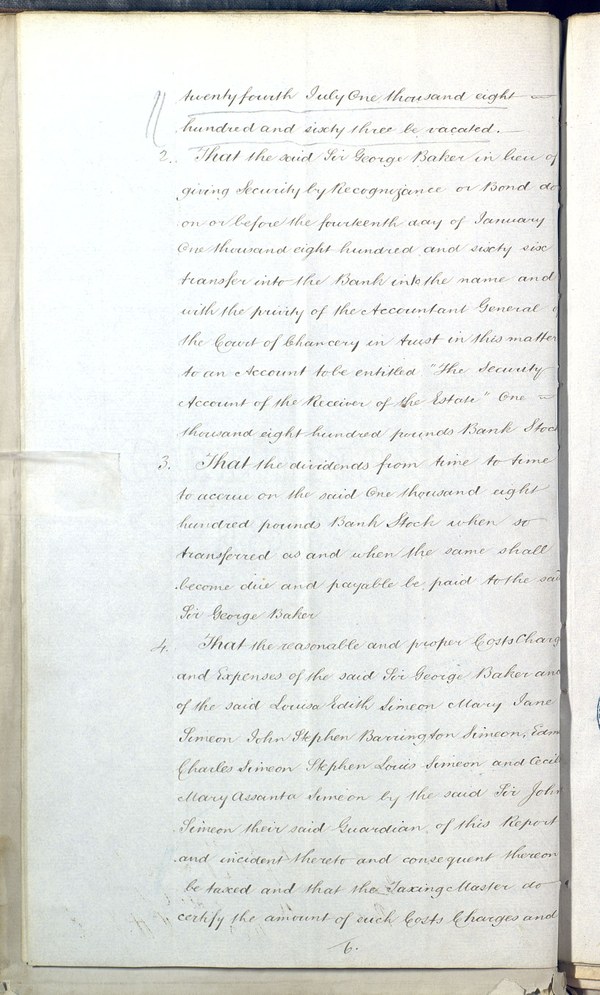 twenty fourth July One thousand eight
hundred and sixty three be vacated.
2. That the said Sir George Baker in lieu of
giving Security by Recognizance or Bond do
on or before the fourteenth day of January
One thousand eight hundred and sixty six
transfer into the Bank into the name and
with the privity of the Accountant General
the Court of Chancery in trust in this matter
to an Account to be entitled "The Security
Account of the Receiver of the Estate" One
thousand eight hundred pounds Bank Stock
3. That the dividends from time to time
to accrue on the said One thousand eight
hundred pounds Bank Stock when so
transferred as and when the same shall
become due and payable be paid to the said
Sir George Baker
4. That the reasonable and proper Costs Charg
and Expenses of the said Sir George Baker and
of the said Louisa Edith Simeon Mary Jane
Simeon John Stephen Barrington Simeon, Edm
Charles Simeon Stephen Louis Simeon and Cecil
Mary Assanta Simeon by the said Sir John
Simeon their said Guardian, of this Report
and incident thereto and consequent thereon
be taxed and that the Taxing Master do
certify the amount of such Costs Charges and
6.